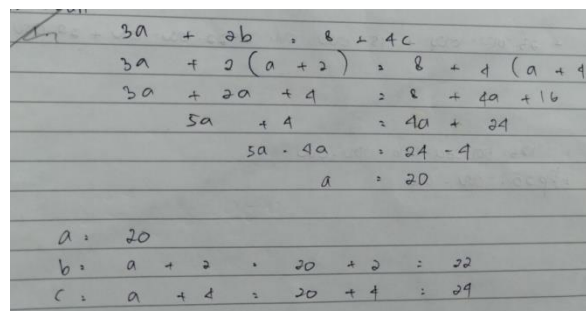 3a + 2b = 8 + 4c
3a + 2 ( a + 2 ) = 8 + 4 ( a + 4
3a + 2a + 4 = 8 + 4a + 16
5a + 4 = 4a + 24
5a - 4a = 24 - 4
a = 20
a = 20
b = a + 2 = 20 + 2 = 22
c = a + 4 = 20 + 4 = 24